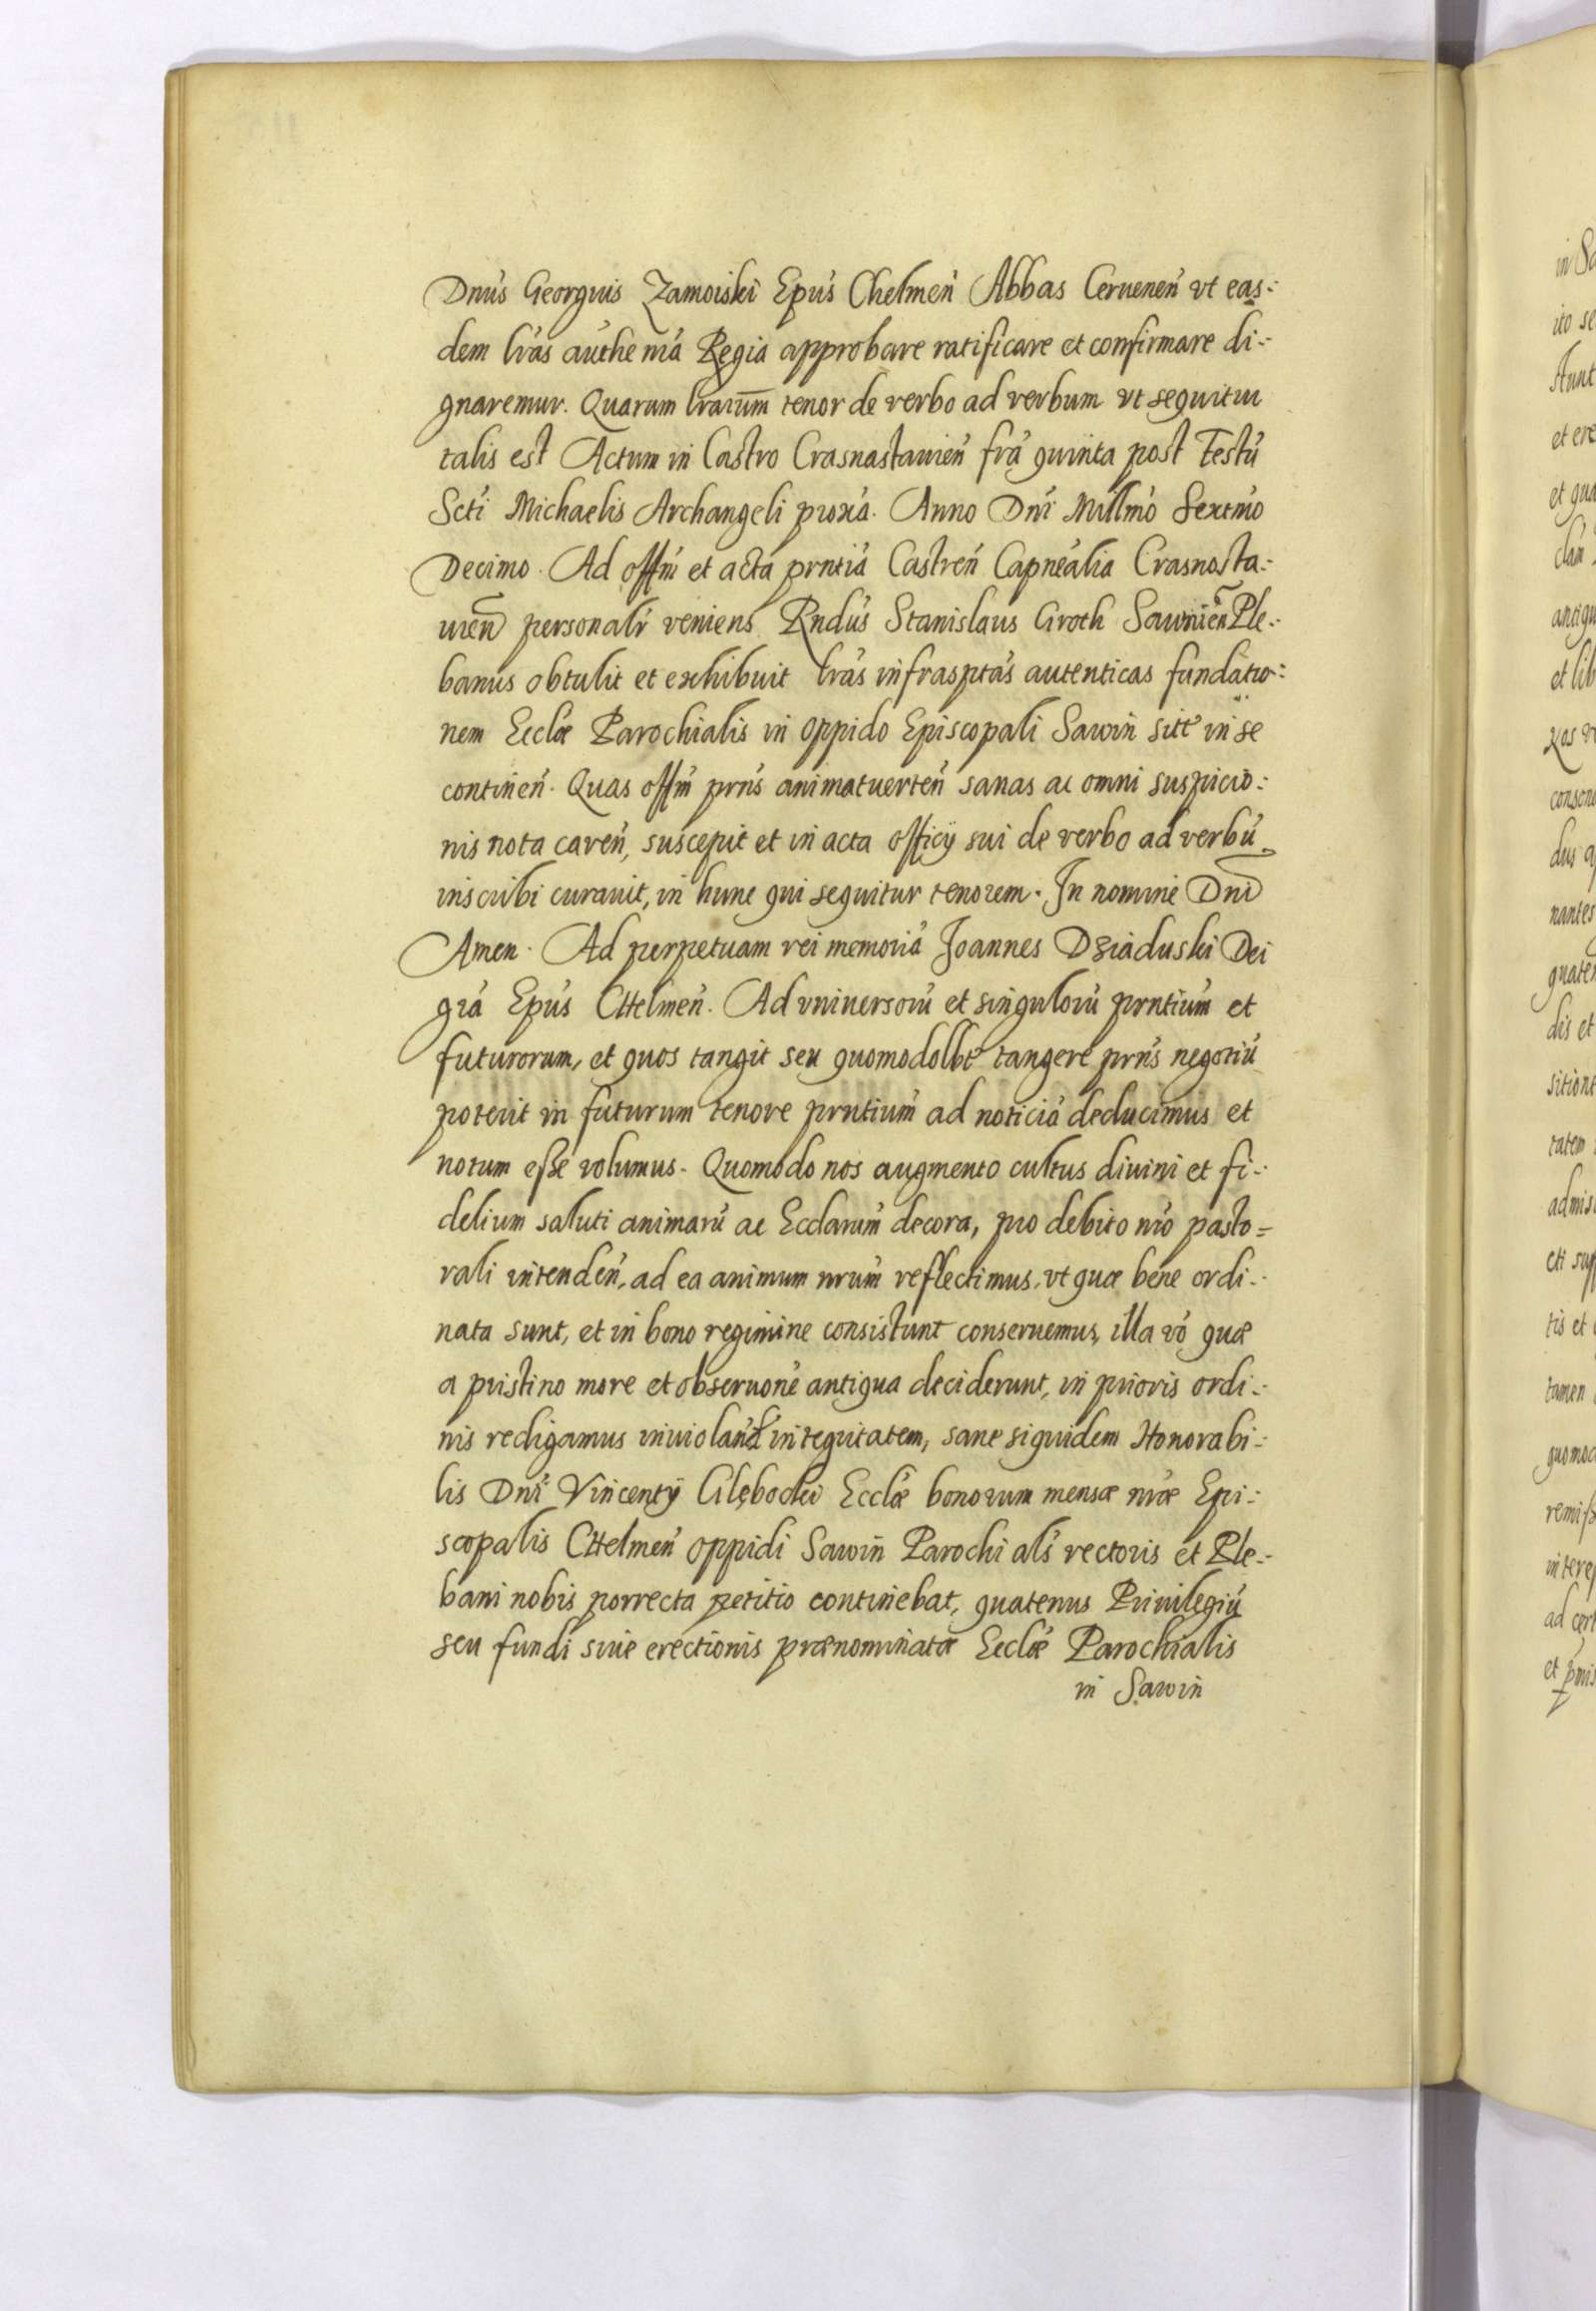 Dnús Georgius Zamoiski Epús Chelmeń Abbas Cerueneń vt eas-
dem lrás authe nrá Regia approbare ratificare et confirmare di-
gnaremur. Quarum lrarum tenor de verbo ad verbum vt sequitur
talis est Actum in Castro Crasnastauień frá quinta post Festú
Scti Michaelis Archangeli proxá. Anno Dni Millmó Sextmó
Decimo. Ad offm et acta prntiá Castreń Capneália Crasnosta-
uień personalr veniens Rndús Stanislaus Groth Sawinień Ple-
banus obtulit et exhibuit lrás infrasptás autenticas fundatio-
nem Ecclæ Parochialis in oppido Episcopali Sawin sitæ in se
contineń. Quas offm prns animatuerteń sanas ac omni suspicio-
nis nota careń, suscepit et in acta officÿ sui de verbo ad verbú
inscribi curauit, in hunc qui sequitur tenorem. In nomine Dni
Amen. Ad perpetuam rei memoriá Joannes Dziaduski Dei
grá Epús Chelmeń. Ad vniuersorú et singulorú prntium et
futurorum, et quos tangit seu quomodolbt tangere prns negotiú
poterit in futurum tenore prntium ad noticiá deducimus et
notum eße volumus. Quomodo nos augmento cultus diuini et fi-
delium saluti animarú ac Ecclarum decora, pro debito nró pasto=
rali intendeń, ad ea animum nrum reflectimus, vt quæ bene ordi-
nata sunt, et in bono regimine consistunt conseruemus, illa vó quæ
a pristino more et obseruoné antiqua deciderunt, in prioris ordi-
nis redigamus inuiolandá integritatem, sane siquidem Honorabi-
lis Dni Vincentÿ Ecclæ bonorum mensæ nræ Epi-
scopalis Chelmeń oppidi Sawin Parochials rectoris et Ple-
bani nobis porrecta petitio continebat, quatenus Priuilegiú
seu fundi siue erectionis prænominatæ Ecclæ Parochialis
in Sawin